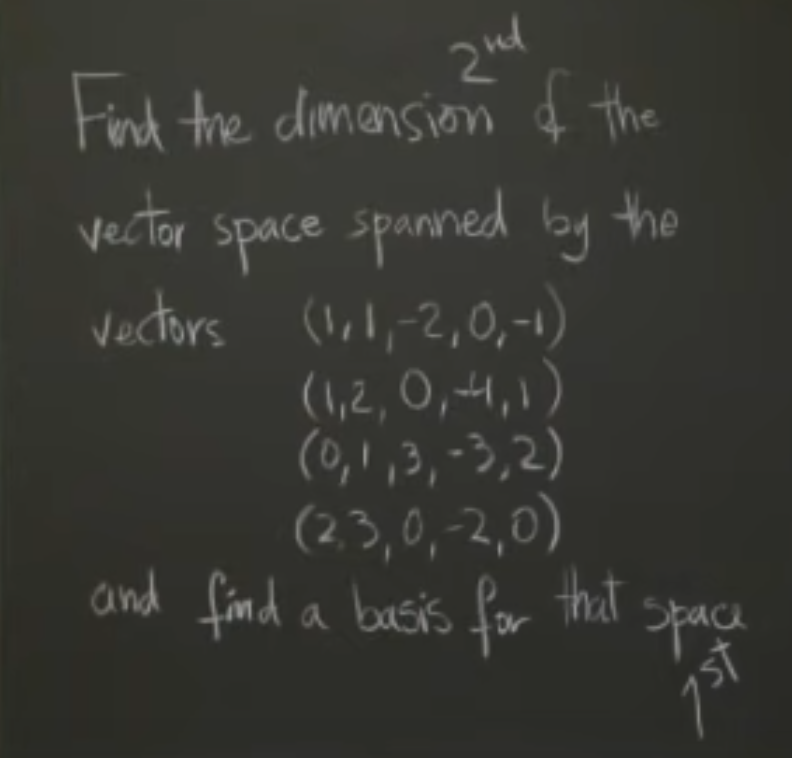 2nd
Find the dimension of the
vector space spanned by the
vectors (1,1,-2,0,-1)
(1,2,0,-4,1)
(0,1,3,-3,2)
(2,3,0,-2,0)
and find a basis for that space
1st